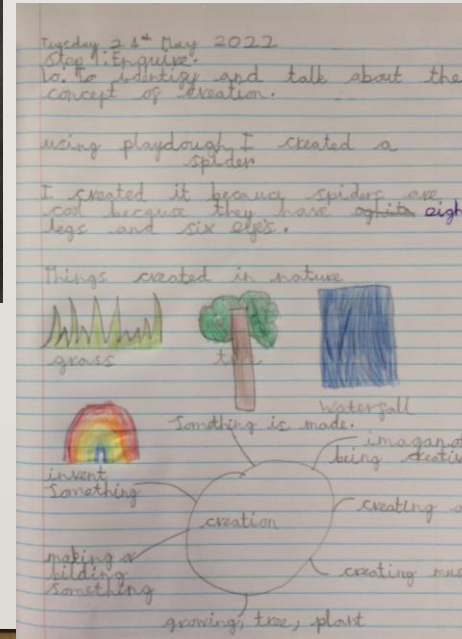 Tuesday 24th May 2022
Step 1: Enquire.
Lo. To identify and talk about the
concept of creation.
using playdough I created a
spider
I created it because spiders are
cool because they have eigh
legs and six eyes.
Things created in nature
grass
tree
Waterfall
Somthing is made.
imagan
being creativ
invent
Something
creation
creating
making or
bilding
Something
creating mus
growing, tree, plant